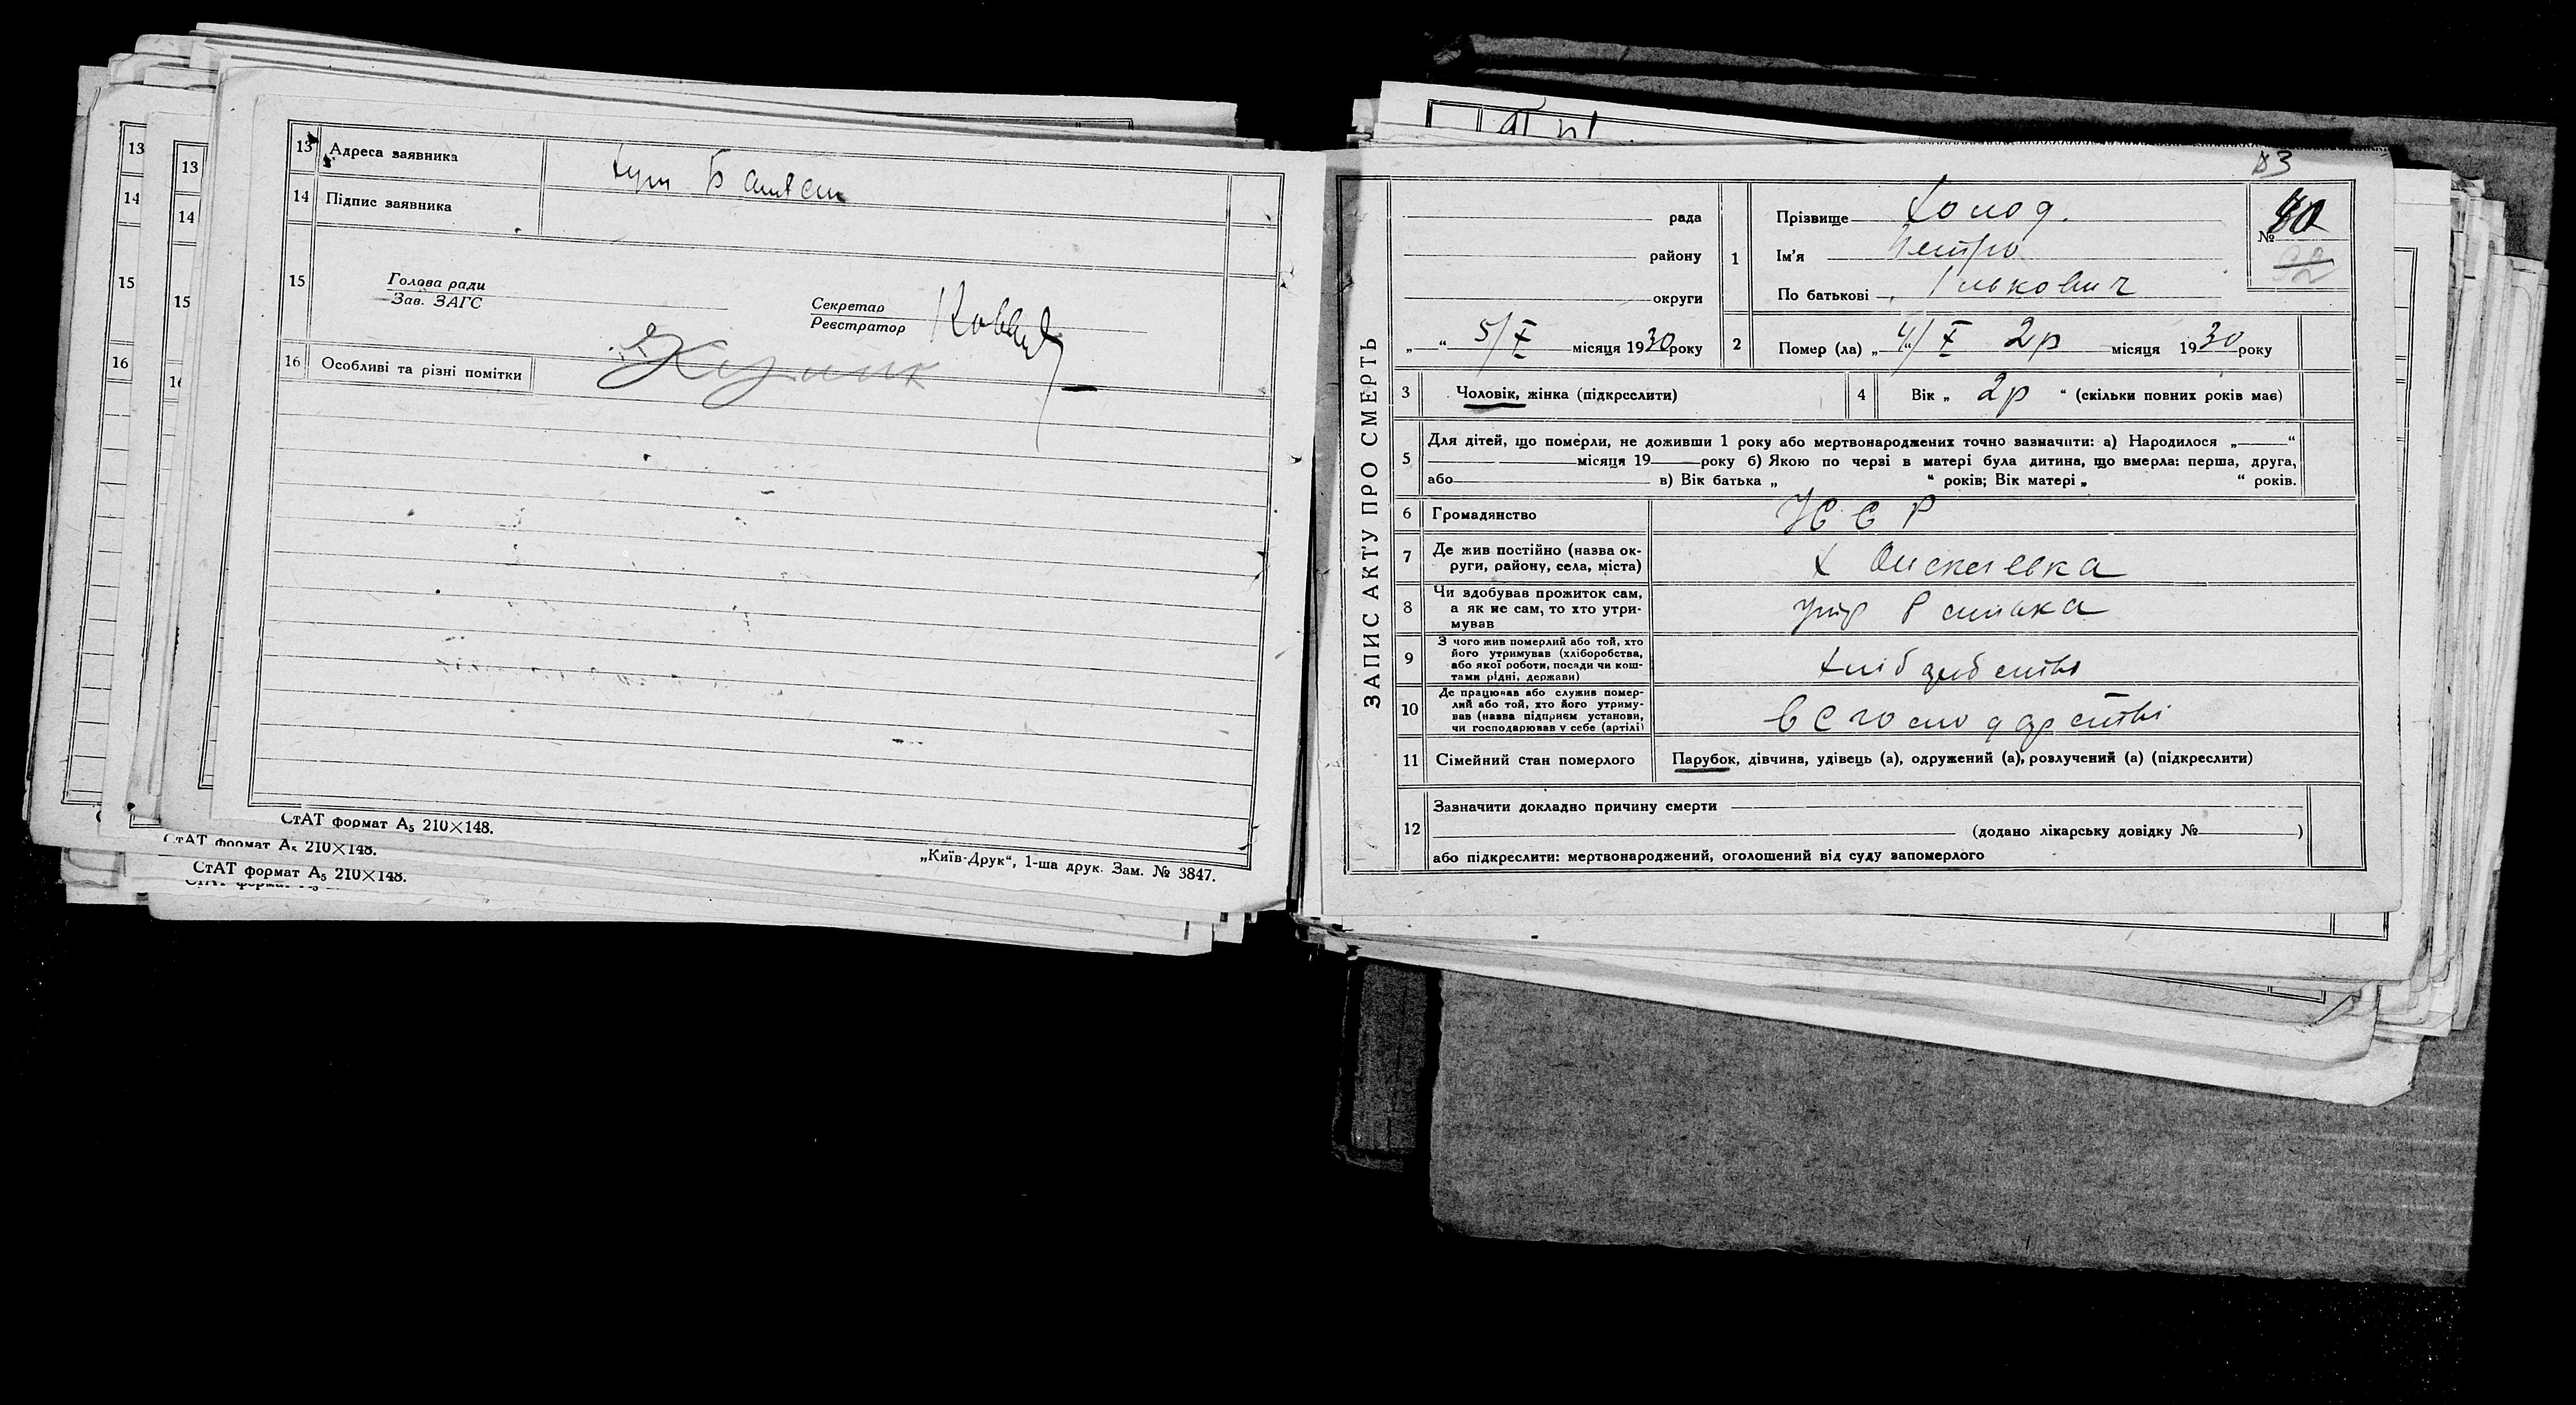 13 Адреса заявника
14 Підпис заявника
15 Голова ради
Зав. ЗАГС
Секретар
Реєстратор
16 Особливі та різні помітки
СтАТ формат А₅ 210×148.
„Київ-Друк“, 1-ша друк. Зам. № 3847.
13
14
15
16
13
14
15
СтАТ формат А₅ 210×148.
83
ЗАПИС АКТУ ПРО СМЕРТЬ
рада
району
округи
„ “ 5/X місяця 1930 року
1 Прізвище Холод.
Ім'я Петро
По батькові Ількович
№ 80
2 Помер (ла) „ “ 4/X 2р місяця 1930 року
3 Чоловік, жінка (підкреслити)
4 Вік „ 2р “ (скільки повних років має)
5 Для дітей, що померли, не доживши 1 року або мертвонароджених точно зазначити: а) Народилося „ “
місяця 19 року б) Якою по черзі в матері була дитина, що вмерла: перша, друга,
або в) Вік батька „ “ років; Вік матері „ “ років.
6 Громадянство
7 Де жив постійно (назва ок-
руги, району, села, міста)
8 Чи здобував прожиток сам,
а як не сам, то хто утри-
мував
9 З чого жив померлий або той, хто
його утримував (хліборобства,
або якої роботи, посади чи кош-
тами рідні, держави)
10 Де працював або служив помер-
лий або той, хто його утриму-
вав (назва підприєм установи,
чи господарював у себе (артілі)
11 Сімейний стан померлого
Парубок, дівчина, удівець (а), одружений (а), розлучений (а) (підкреслити)
12 Зазначити докладно причину смерти
(додано лікарську довідку № )
або підкреслити: мертвонароджений, оголошений від суду запомерлого